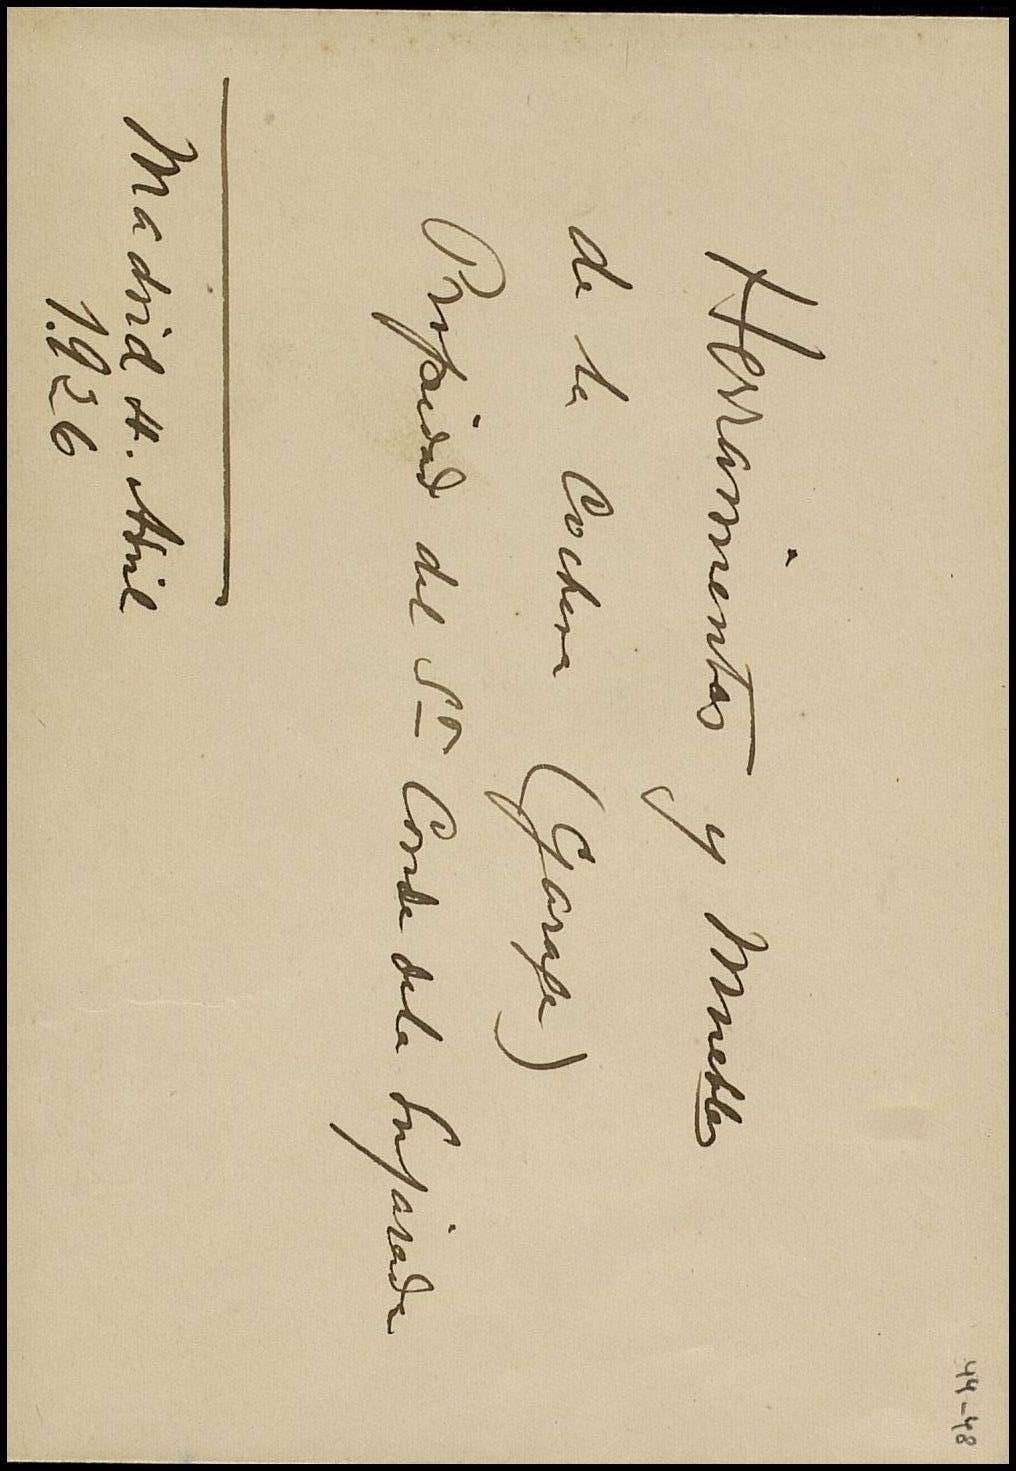 44-48
Herramientas y Muebles
de la Cochera (Garage)
Propiedad del Sr Conde de la
Madrid 4. Abril
1.926